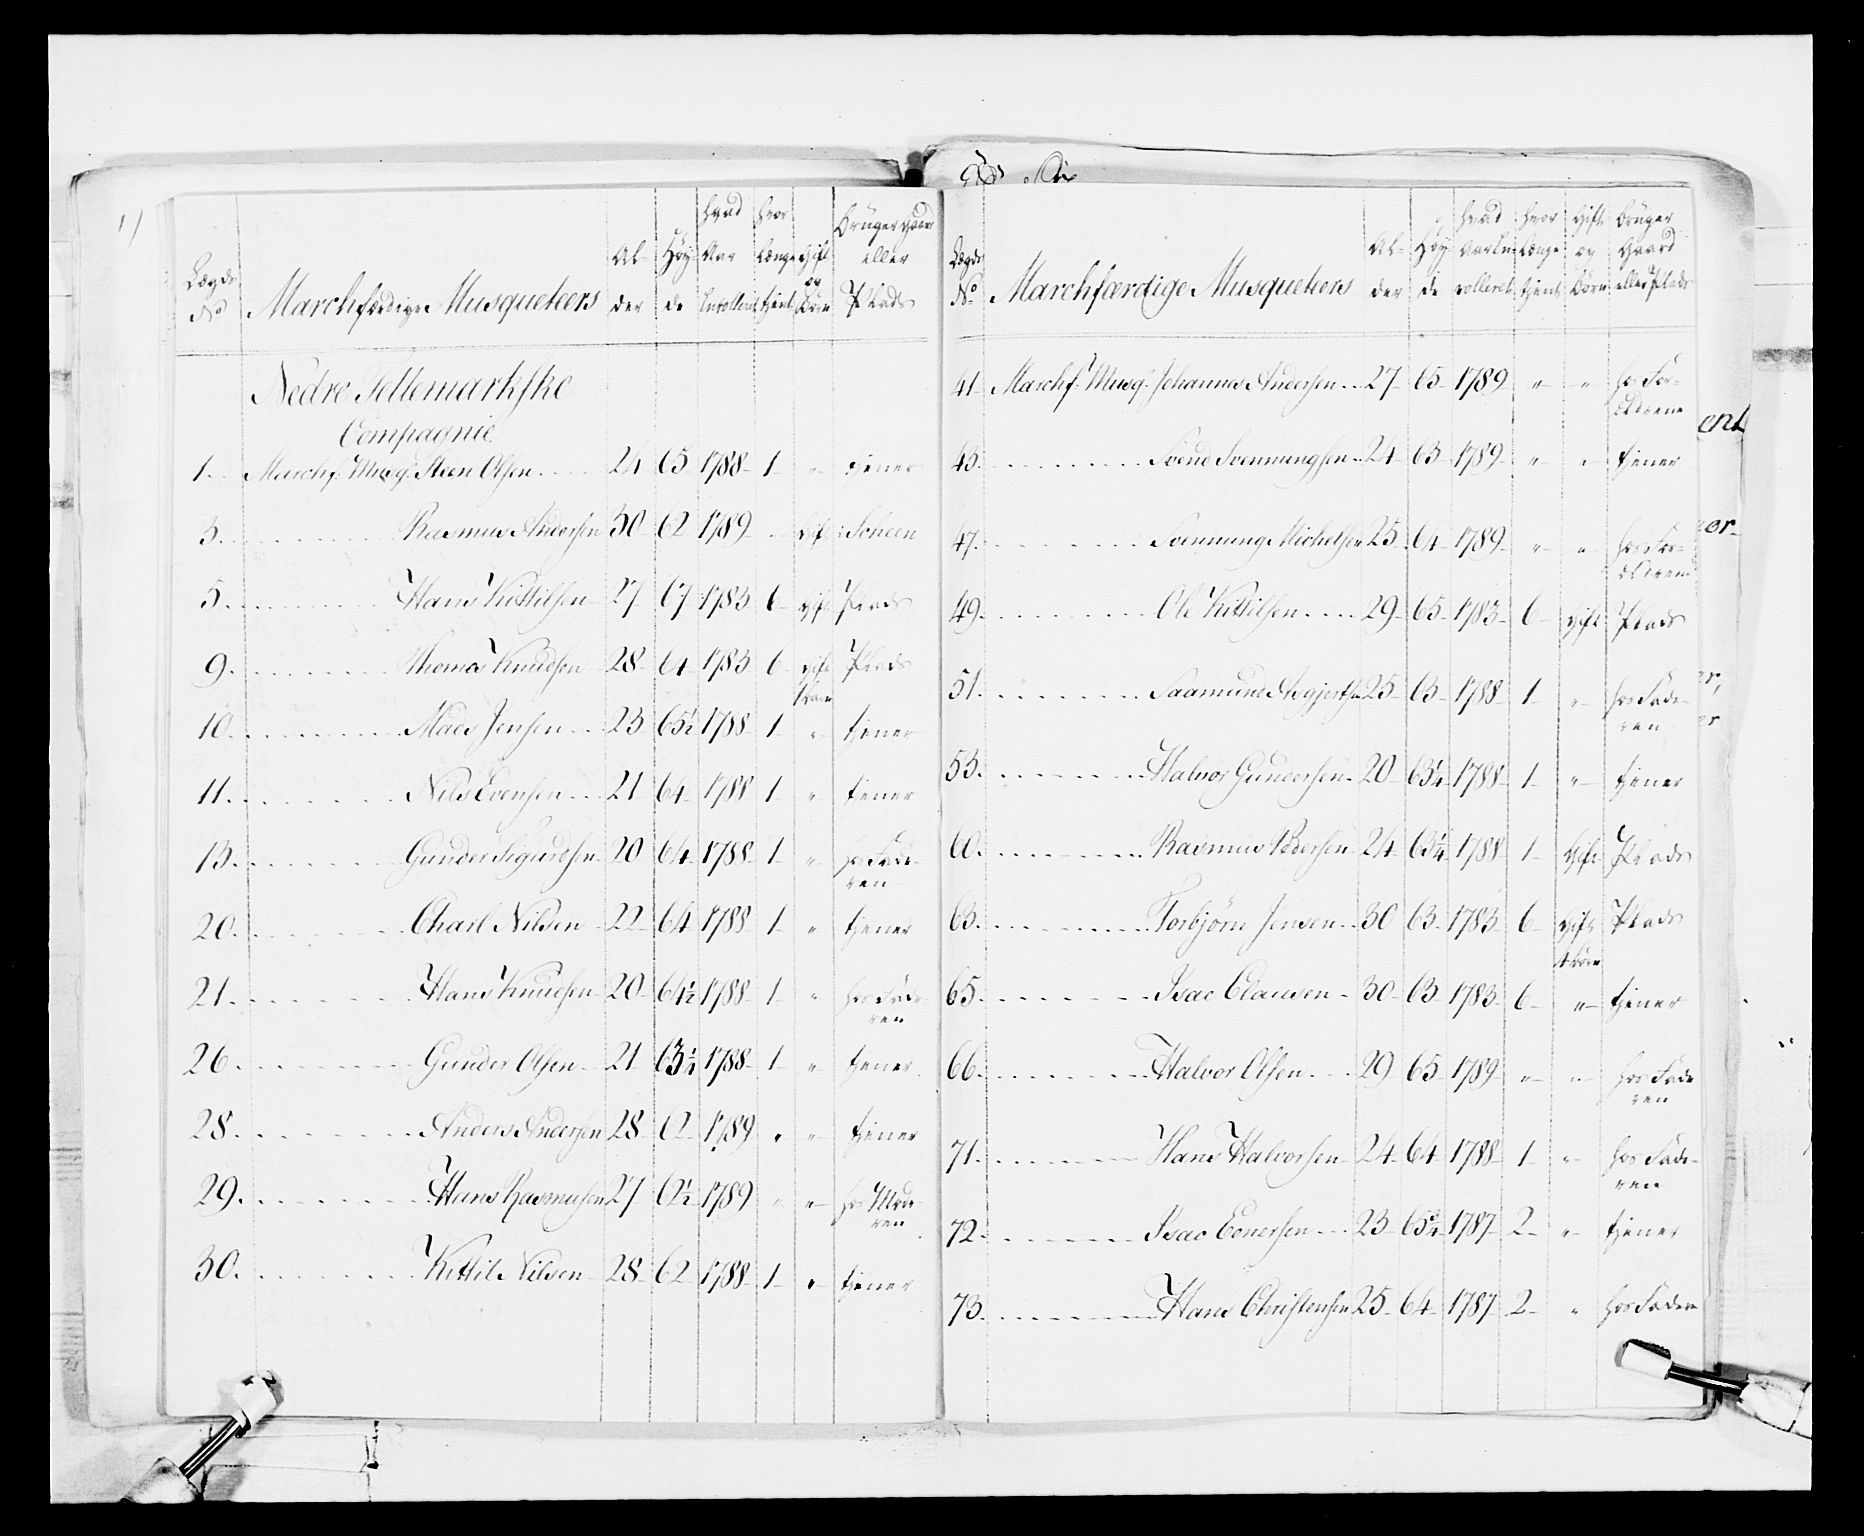 Lægds No Marchfærdige Musqueteers Al- der Høy de hvad Aar Enrolleret hvor længe tjent Gift og Børn Bruger Gaard eller Plads
Nedre Tellemarkske
Compagnie
1. Marchf. Musq. Steen Olsen 24 65 1788 1 " tjener
3. Rasmus Andersen 30 62 1789 gift Scheen
5. Hans Kittilsen 27 67 1783 6 gift Plads
9. Thomas Knudsen 28 64 1783 6 gift Plads
10. Mads Jensen 23 65½ 1788 1 " tjener
11. Nils Evensen 21 64 1788 1 " tjener
13. Gunder Sigurdsen 20 64 1788 1 " hos Fade-
ren
20. Charl Nilsen 22 64 1788 1 " tjener
21. Hans Knudsen 20 64½ 1788 1 " hos Fade-
ren
26. Gunder Olsen 21 63½ 1788 1 " tjener
28. Anders Andersen 28 62 1789 " " tjener
29. Hans Rasmusen 27 1789 " " hos Mode-
ren
30. Kittil Nilsen 28 62 1788 1 " tjener
Lægds No. Marchfærdige Musqueteers Al- der Høy- de hvad Aar En- rolleret hvor længe tjent Gift og Børn bruger Gaard eller Plads
41 Marchf. Musq. Johannes Andersen 27 65 1789 " " hos For-
ældrene
43. Svend Svennungsen 24 63 1789 " " tjener
47. Svennung Michelsen 25 64 1789 " " hos For-
ældrene
49. Ole Kittilsen 29 65 1783 6 gift Plads
51. Saamund Asgjersen 25 63 1788 1 " hos Fade-
ren
53. Halvor Gundersen 20 63¼ 1788 1 " tjener
60. Rasmus Pedersen 24 63¼ 1788 1 gift Plads
63. Torbjørn Jensen 30 63 1783 6 gift Plads
børn
65. Isac Clausen 30 63 1783 6 " tjener
66. Halvor Olsen 29 65 1789 " " hos Fade
ren
71. Hans Halvorsen 24 64 1788 1 " hos Fade-
ren
72. Isac Evensen 23 65¾ 1787 2 " tjener
73. Hans Christensen 25 64 1787 2 " hos Faderen